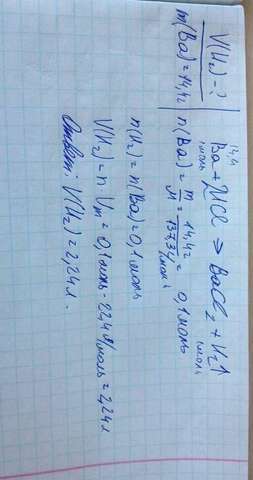 V(H₂) - ?
m(Ba) = 14,4г
14,4
Ba + 2HCl → BaCl₂ + H₂↑
1моль 1моль
n(Ba) = m/M = 14,4г/137,34г/моль = 0,1моль
n(H₂) = n(Ba) = 0,1моль
V(H₂) = n · Vm = 0,1моль · 22,4л/моль = 2,24л
Ответ: V(H₂) = 2,24л.